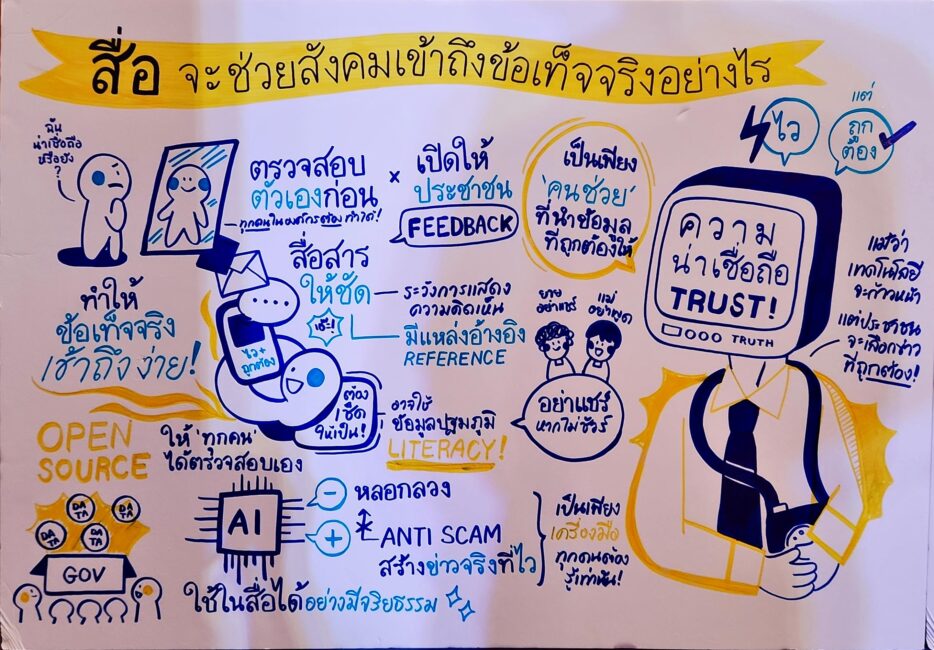 สื่อ จะช่วยสังคมเข้าถึงข้อเท็จจริงอย่างไร
ฉัน
น่าเชื่อถือ
หรือยัง
?
ตรวจสอบ
ตัวเองก่อน
ทุกคนในองค์กรต้องทำได้!
×
เปิดให้
ประชาชน
FEEDBACK
เป็นเพียง
'คนช่วย'
ที่นำข้อมูล
ที่ถูกต้องให้
ไว
แต่
ถูก
ต้อง
ความ
น่าเชื่อถือ
TRUST!
TRUTH
แม้ว่า
เทคโนโลยี
จะก้าวหน้า
แต่ประชาชน
จะเลือกข่าว
ที่ถูกต้อง!
ทำให้
ข้อเท็จจริง
เข้าถึงง่าย!
ไว+
ถูกต้อง
สื่อสาร
ให้ชัด
ระวังการแสดง
ความคิดเห็น
มีแหล่งอ้างอิง
REFERENCE
ต้อง
เช็ค
ให้เป็น!
อาจใช้
ข้อมูลปฐมภูมิ
LITERACY!
อย่าแชร์
หากไม่ชัวร์
OPEN
SOURCE
ให้ 'ทุกคน'
ได้ตรวจสอบเอง
DATA
DATA
DATA
DATA
GOV
AI
- หลอกลวง
+ ANTI SCAM
สร้างข่าวจริงที่ไว
เป็นเพียง
เครื่องมือ
ทุกคนต้อง
รู้เท่าทัน!
ใช้ในสื่อได้อย่างมีจริยธรรม